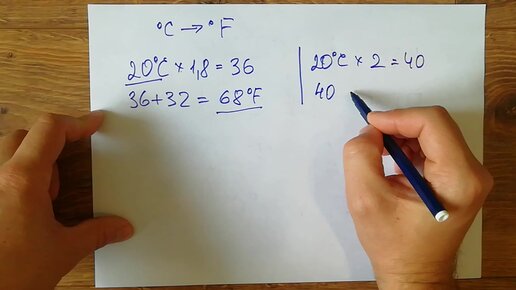 °C → °F
20°C × 1,8 = 36
36+32 = 68°F
20°C × 2 = 40
40